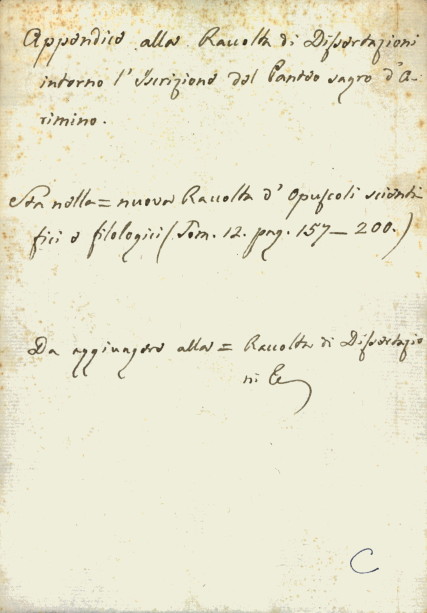 Appendice alla Raccolta di Dissertazioni
intorno l'Iscrizione del Panteo sagro d'A-
rimino.
Sta nella = nuova Raccolta d'Opuscoli scienti
fici e filologici (Tom. 12. pag. 157-200.)
Da aggiungere alla = Raccolta di Dissertazio
ni &c
C